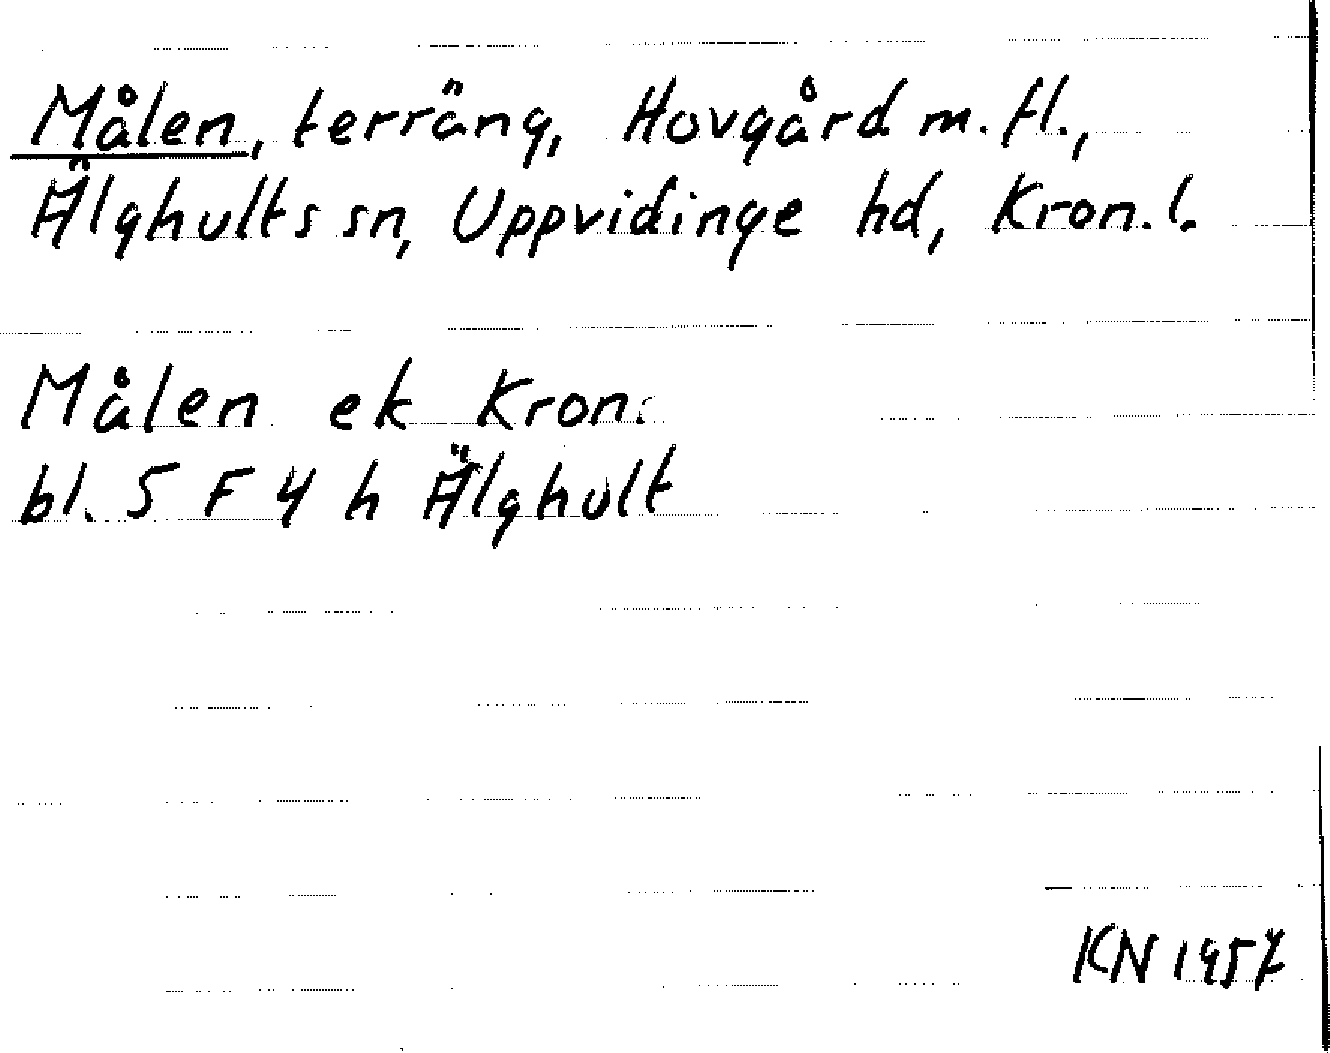 Målen, terräng, Hovgård m. fl.,
Älghults sn, Uppvidinge hd, Kron. l.
Målen ek Kron.
bl. 5 F 4 h Älghult
KN 1957